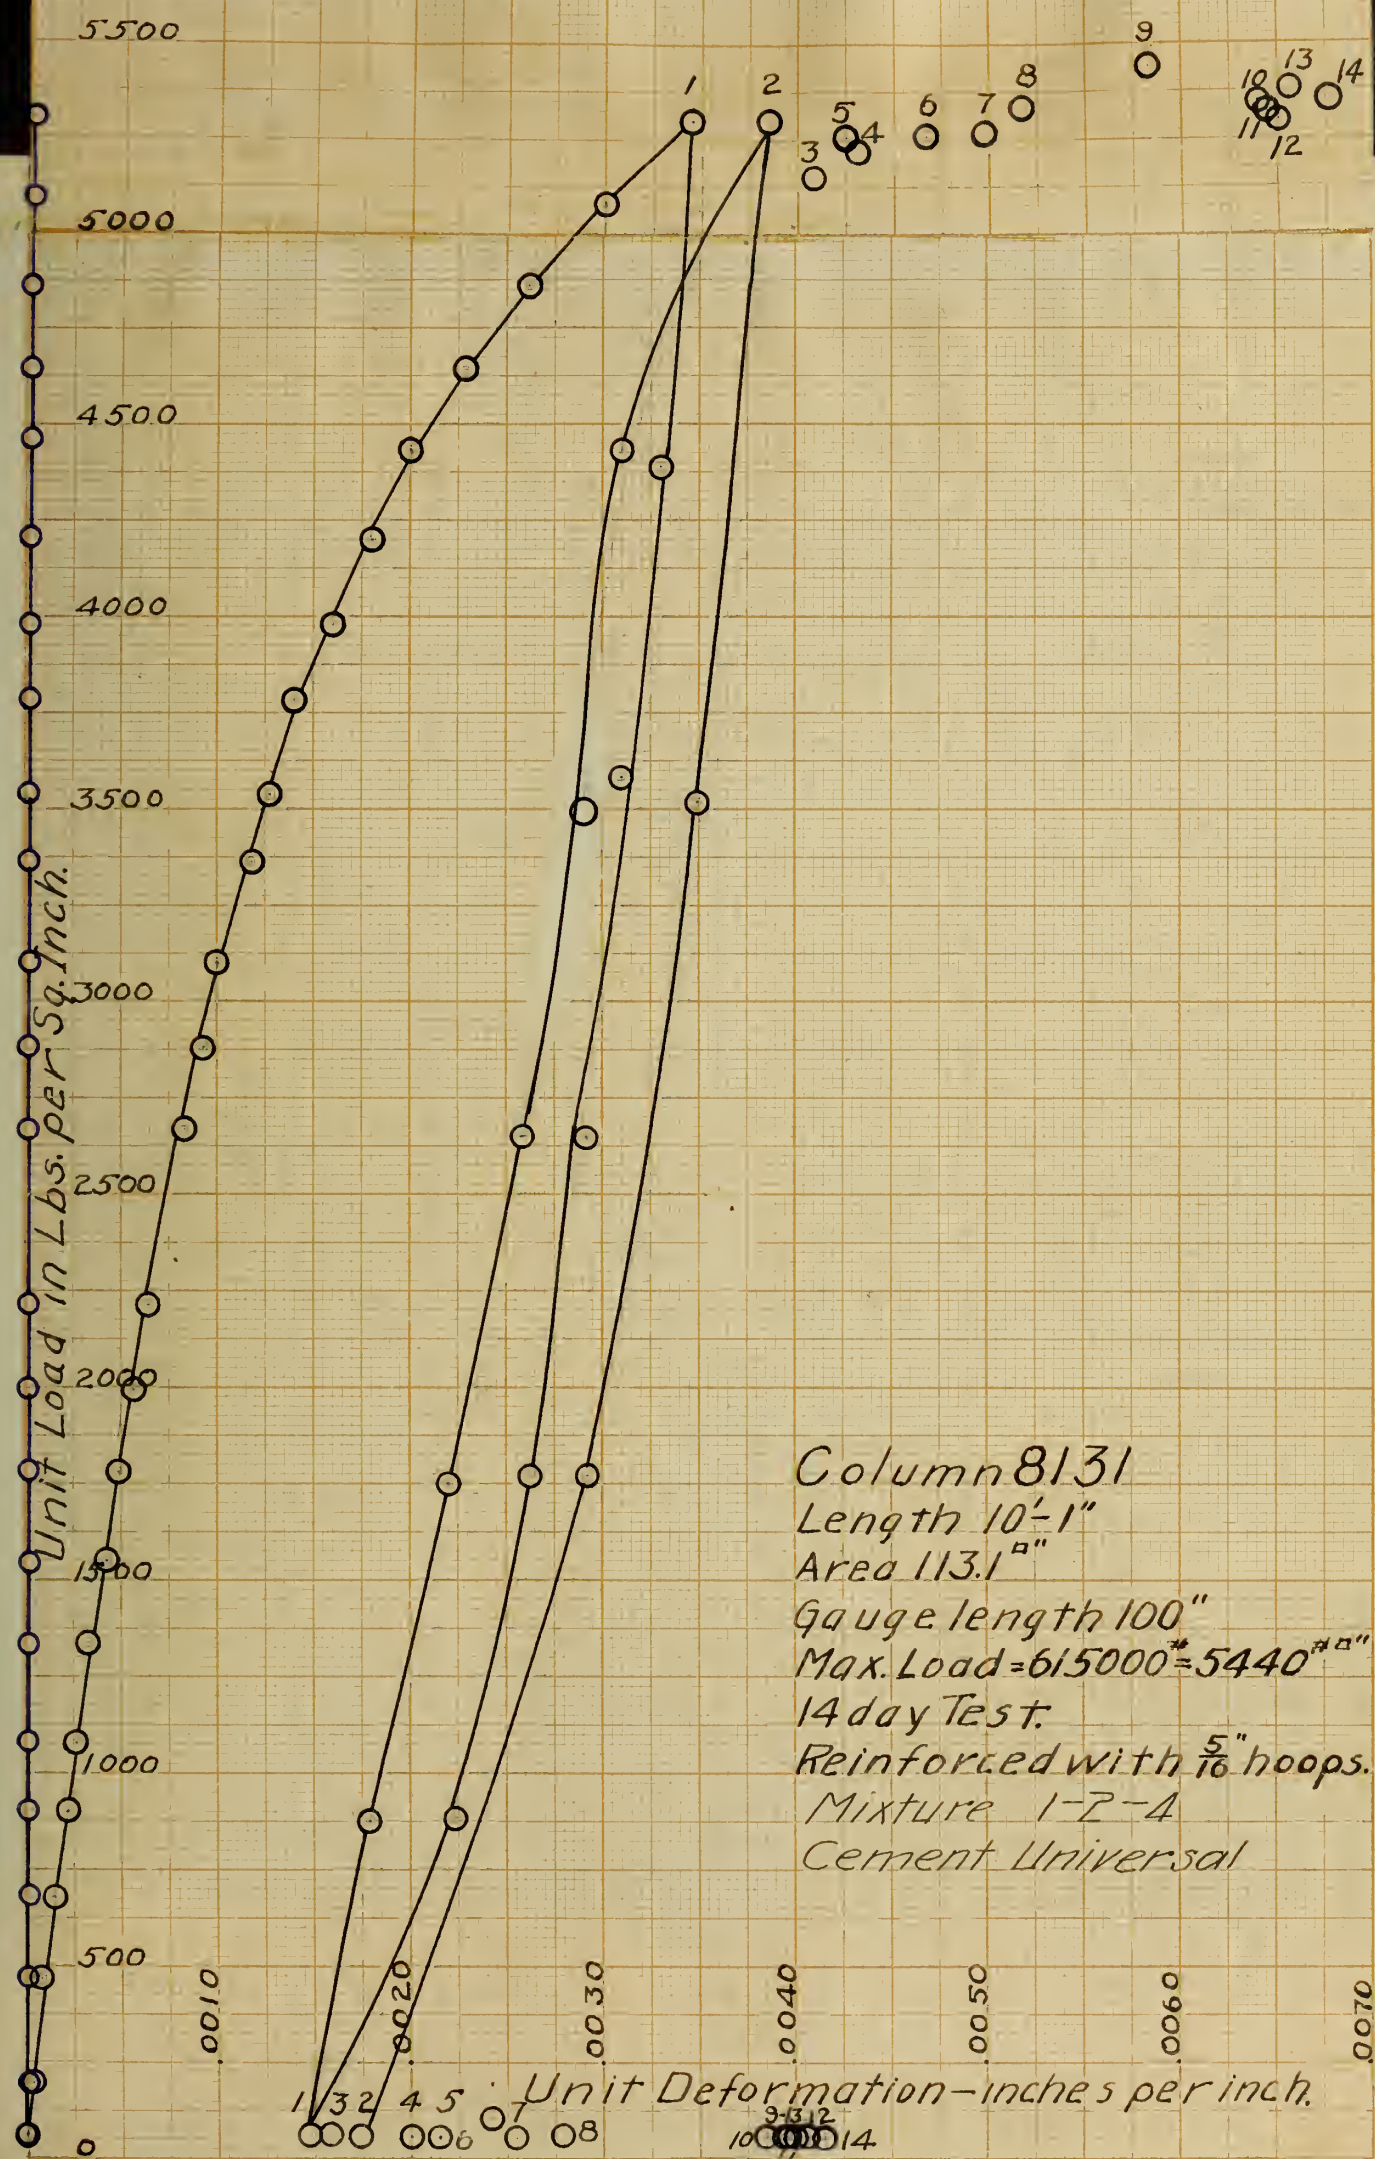 5500
9
1 2
5 4 6 7 8
10 13 14
3
11 12
5000
4500
4000
3500
Unit Load in Lbs. per Sq. Inch.
3000
2500
2000
1500
1000
500
0
Column 8131
Length 10'-1"
Area 113.1□"
Gauge length 100"
Max. Load = 615000# = 5440#□"
14 day Test.
Reinforced with 5/16" hoops.
Mixture 1-2-4
Cement Universal
.0010 .0020 .0030 .0040 .0050 .0060 .0070
Unit Deformation-inches per inch.
1 3 2 4 5 6 7 8
9 13 12
10 14
11